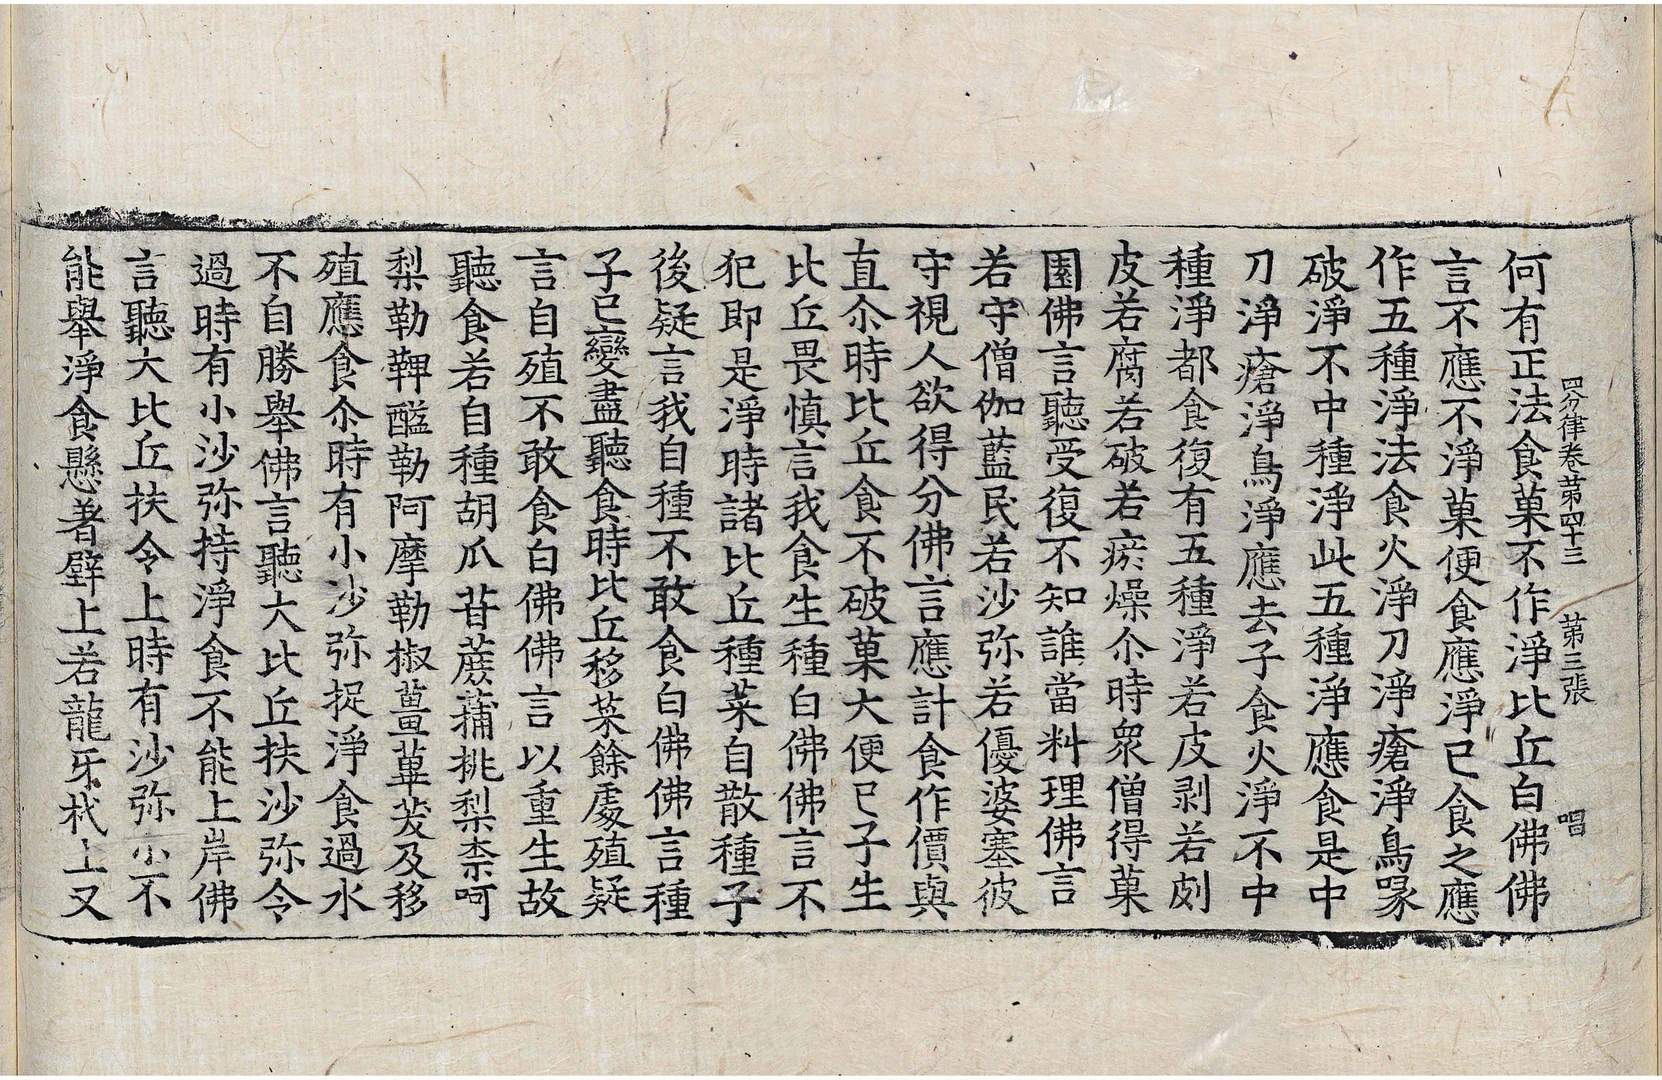 四分律卷苐四十三　苐三張　唱
何有正法食菓不作淨比丘白佛佛
言不應不淨菓便食應淨已食之應
作五種淨法食火淨刀淨瘡淨鳥啄
破淨不中種淨此五種淨應食是中
刀淨瘡淨鳥淨應去子食火淨不中
種淨都食復有五種淨若皮剥若剜
皮若腐若破若瘀燥尒時衆僧得菓
園佛言聽受復不知誰當料理佛言
若守僧伽藍民若沙弥若優婆塞彼
守視人欲得分佛言應計食作價與
直尒時比丘食不破菓大便已子生
比丘畏慎言我食生種白佛佛言不
犯即是淨時諸比丘種菜自散種子
後疑言我自種不敢食白佛佛言種
子已變盡聽食時比丘移菜餘處殖疑
言自殖不敢食白佛佛言以重生故
聽食若自種胡瓜苷蔗蒱挑梨㮈呵
梨勒鞞醯勒阿摩勒椒薑蓽茇及移
殖應食尒時有小沙弥捉淨食過水
不自勝舉佛言聽大比丘扶沙弥令
過時有小沙弥持淨食不能上岸佛
言聽大比丘扶令上時有沙弥小不
能舉淨食懸著壁上若龍牙杙上又